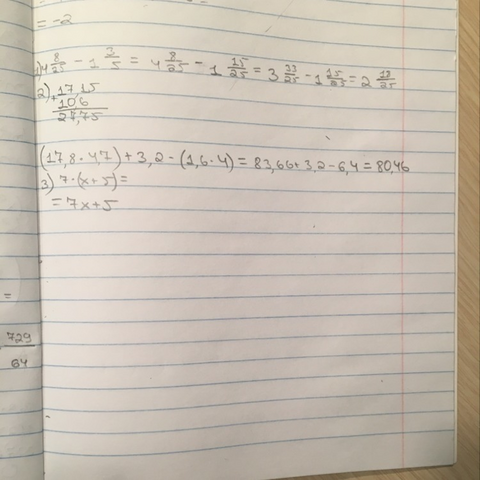 = -2
1) 4 8/25 - 1 3/5 = 4 8/25 - 1 15/25 = 3 33/25 - 1 15/25 = 2 18/25
2) 17,15
+
10,6
27,75
(17,8 · 4,7) + 3,2 - (1,6 · 4) = 83,66 + 3,2 - 6,4 = 80,46
3) 7 · (x + 5) =
= 7x + 5
=
729
64